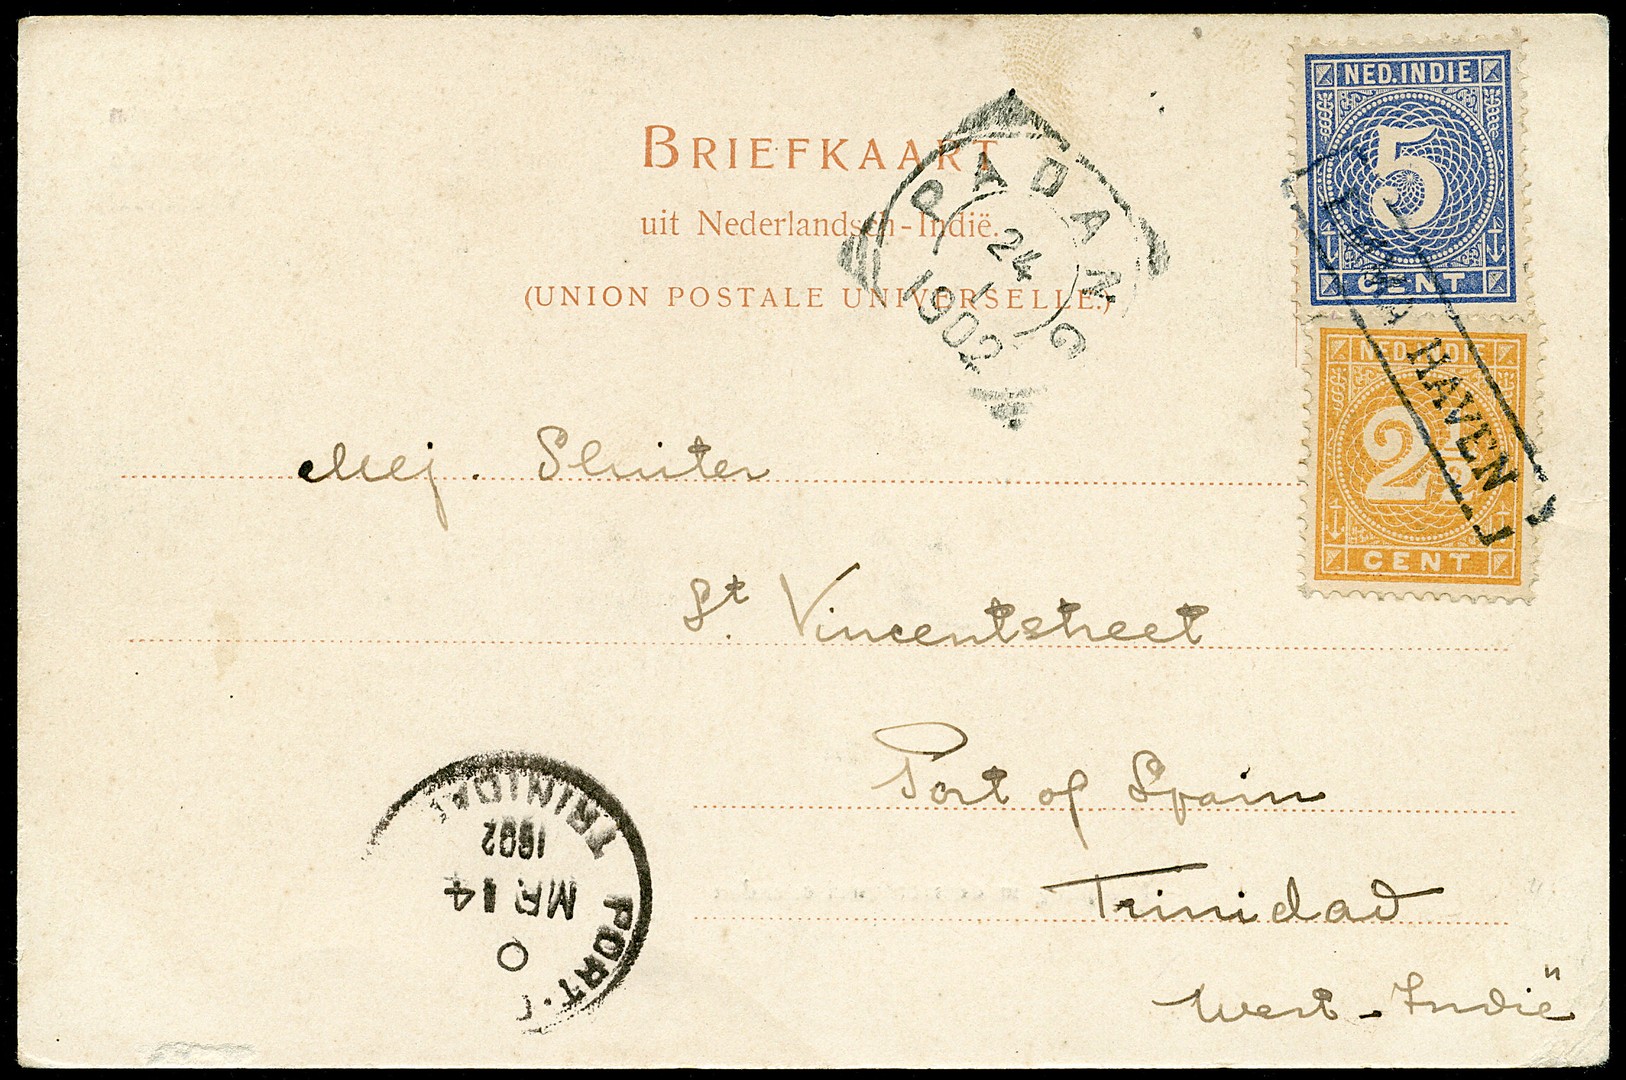 BRIEFKAART
uit Nederlandsch-Indië.
(UNION POSTALE UNIVERSELLE.)
PADANG
24
1
1902
NED. INDIE
5
CENT
NED. INDIE
2 1/2
CENT
HAVEN
Mej. Sluiter
St. Vincentstreet
Port of Spain
Trinidad
West-Indië
TRINIDAD
1902
MR 14
O
PORT